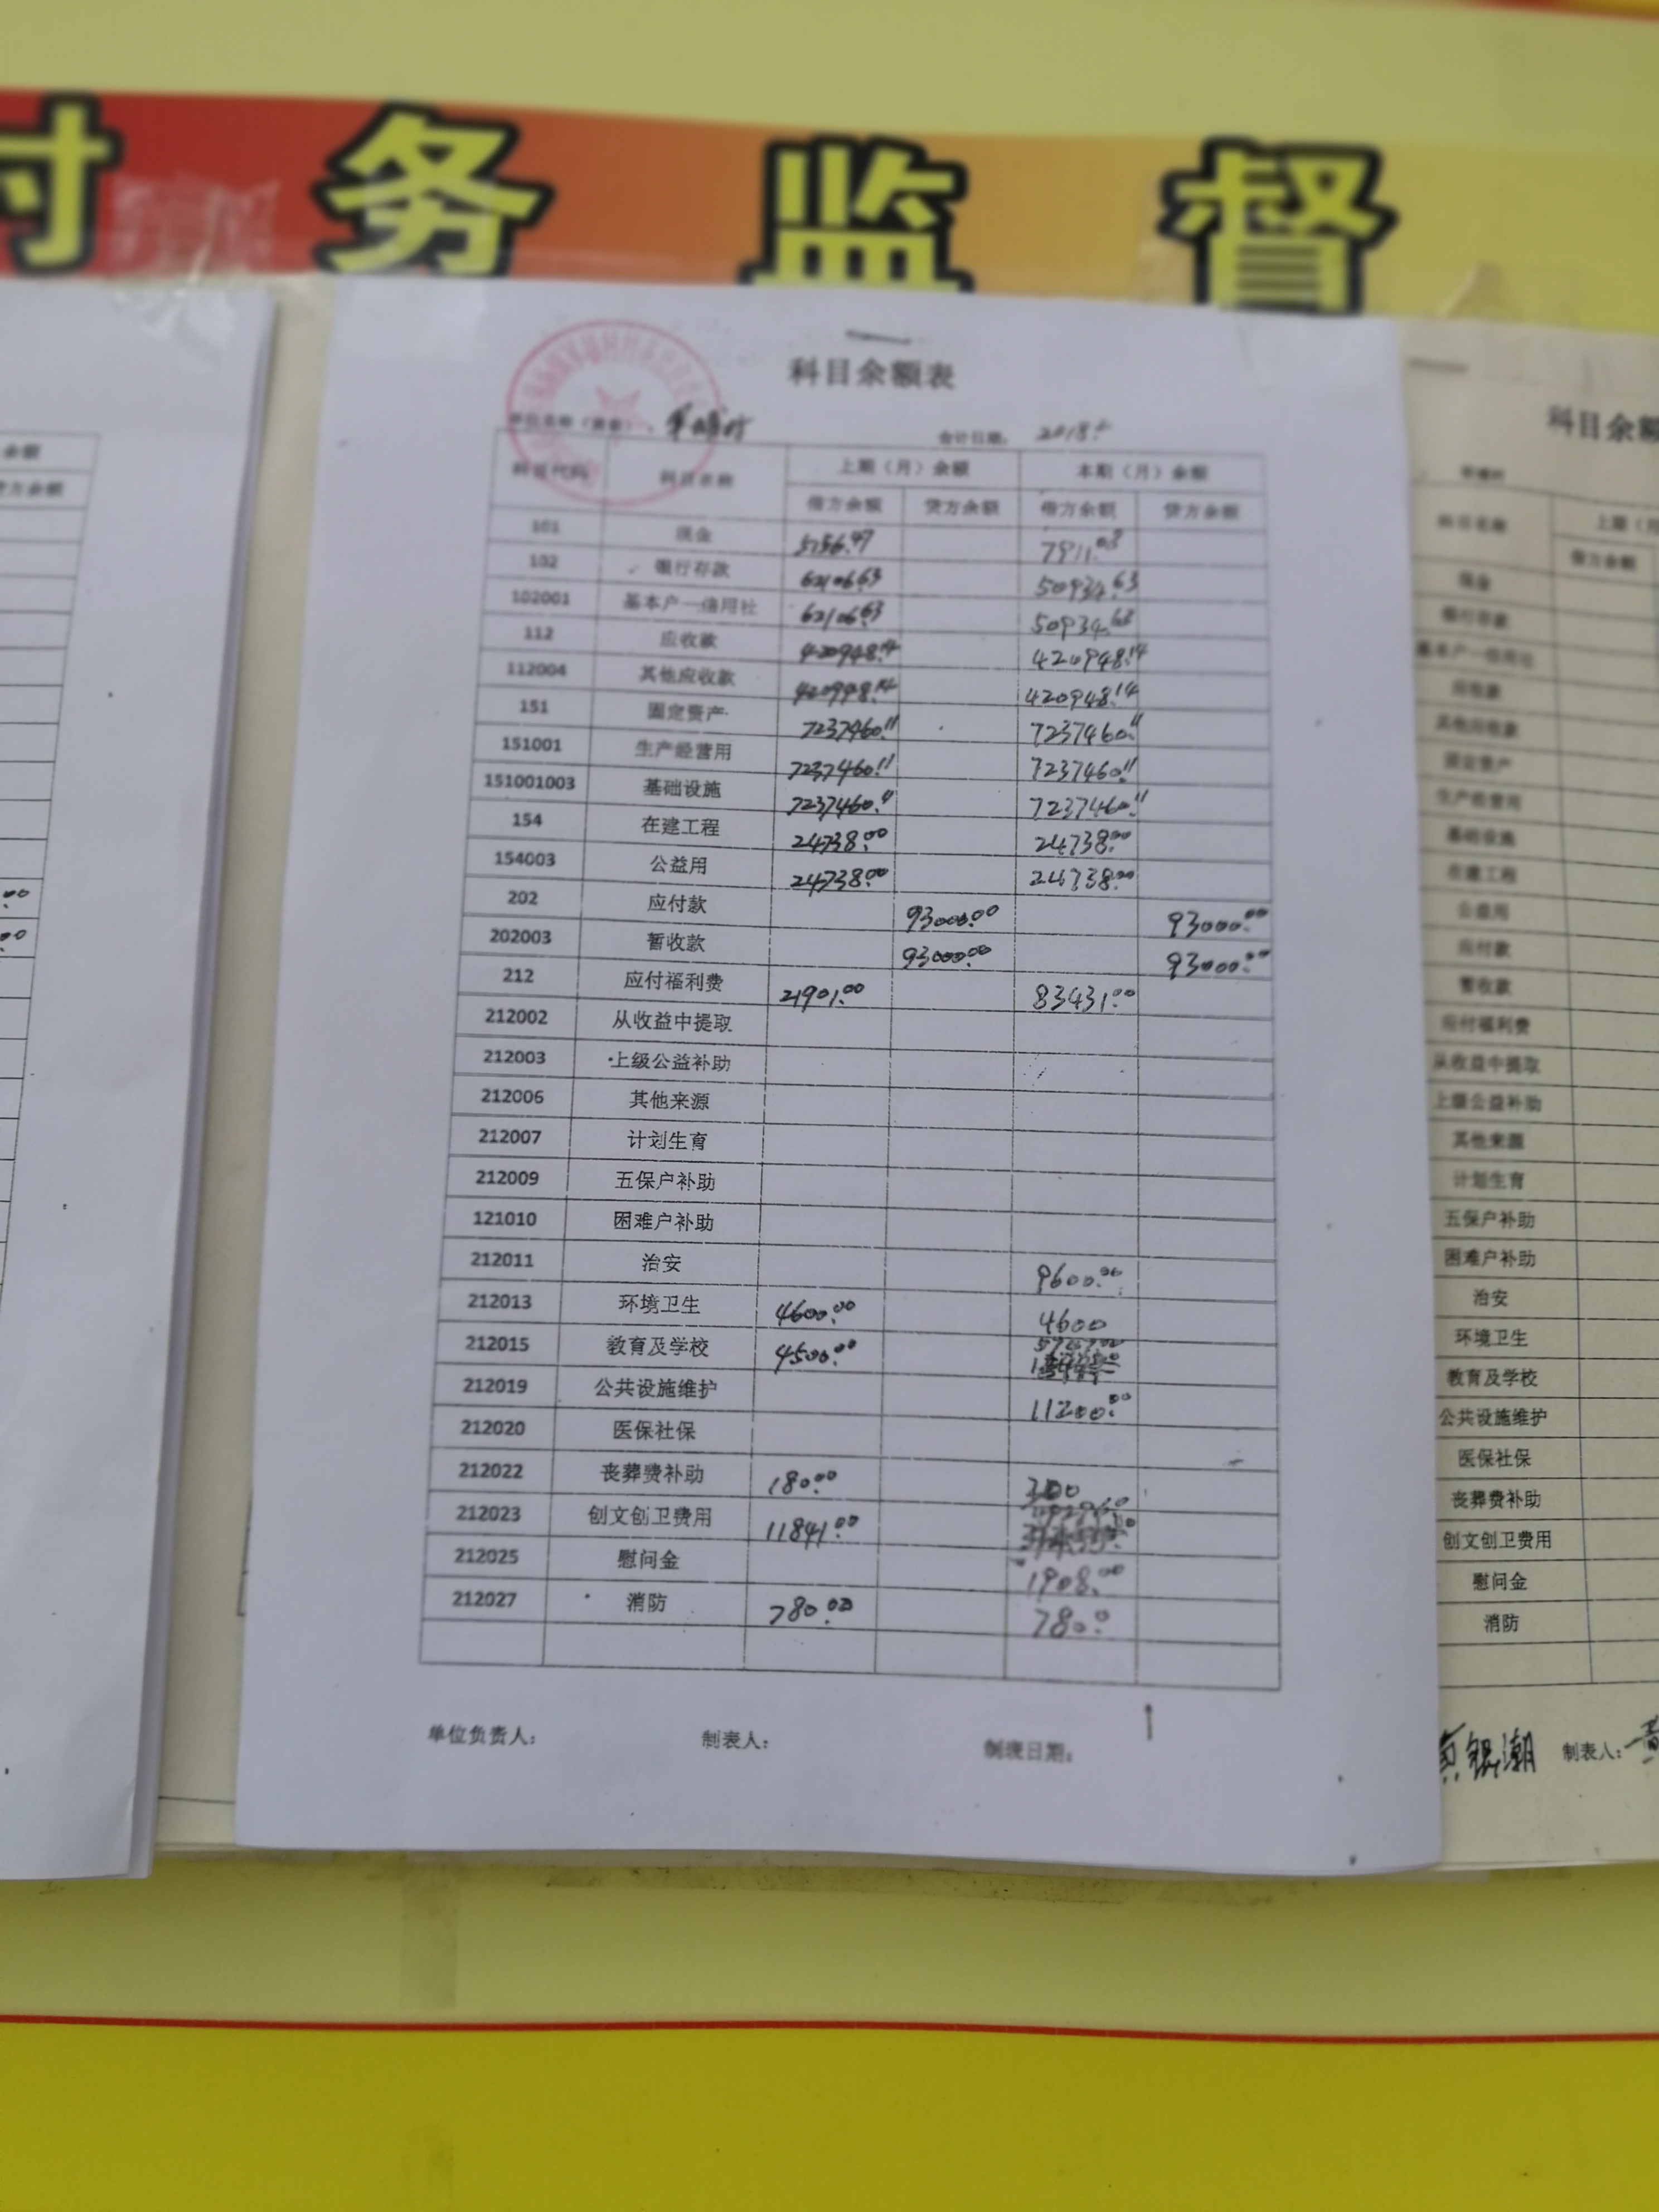 村 务 监 督
科目余额表
会计日期： 2018.
科目代码 科目名称 上期（月）余额 本期（月）余额
借方余额 贷方余额 借方余额 贷方余额
101 现金 5156.47 7911.08
102 银行存款 62106.63 50934.63
102001 基本户—信用社 62106.63 50934.63
112 应收款 420948.14 420948.14
112004 其他应收款 420948.14 420948.14
151 固定资产 7237460.11 7237460.11
151001 生产经营用 7237460.11 7237460.11
151001003 基础设施 7237460.11 7237460.11
154 在建工程 24738.00 24738.00
154003 公益用 24738.00 24738.00
202 应付款 93000.00 93000.00
202003 暂收款 93000.00 93000.00
212 应付福利费 21901.00 83431.00
212002 从收益中提取
212003 上级公益补助
212006 其他来源
212007 计划生育
212009 五保户补助
121010 困难户补助
212011 治安 9600.00
212013 环境卫生 4600.00 4600
212015 教育及学校 4500.00
212019 公共设施维护 11200.00
212020 医保社保
212022 丧葬费补助 180.00
212023 创文创卫费用 11841.00
212025 慰问金 1908.00
212027 消防 780.00 780.0
单位负责人： 制表人： 制表日期：
余额
贷方余额
.00
.00
科目余额
科目名称 上期（月
借方余额
现金
银行存款
基本户—信用社
应收款
其他应收款
固定资产
生产经营用
基础设施
在建工程
公益用
应付款
暂收款
应付福利费
从收益中提取
上级公益补助
其他来源
计划生育
五保户补助
困难户补助
治安
环境卫生
教育及学校
公共设施维护
医保社保
丧葬费补助
创文创卫费用
慰问金
消防
银潮 制表人：